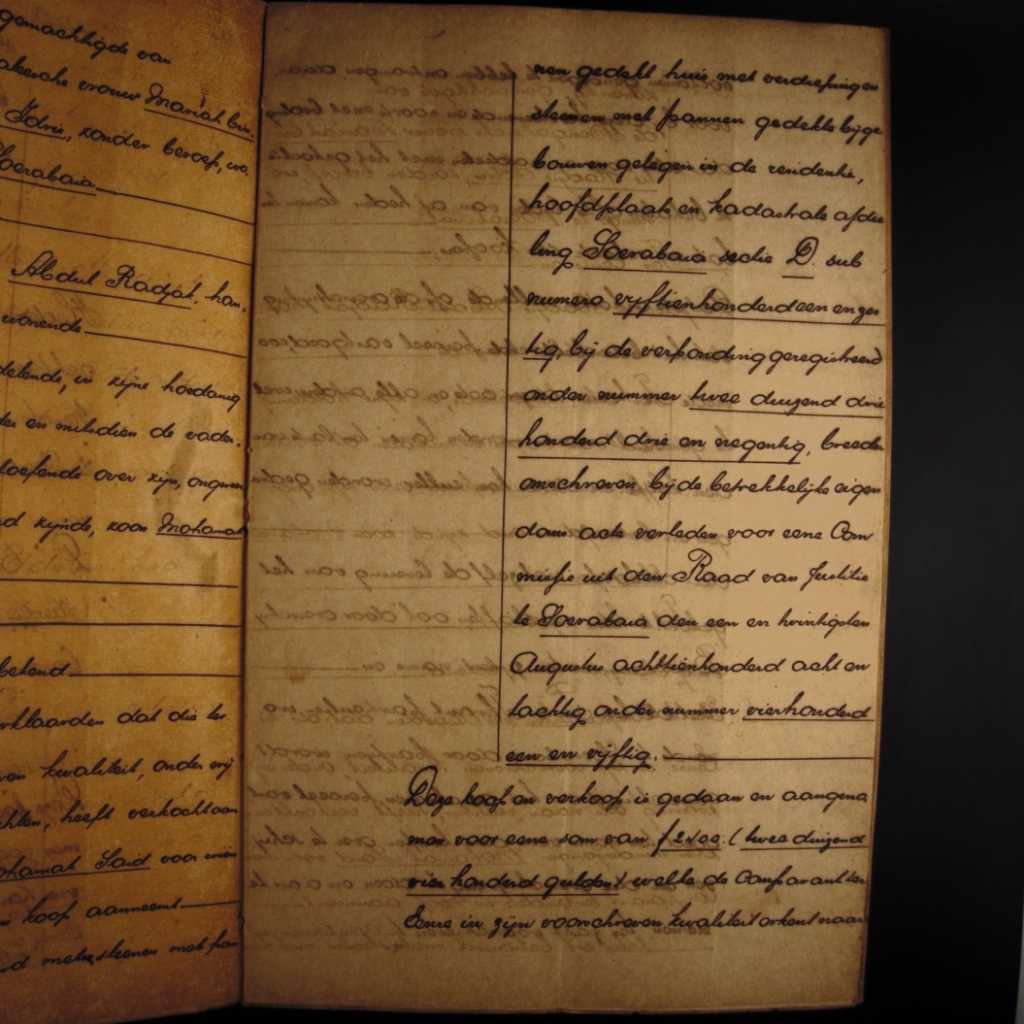 gemachtigde van
vrouw Mariah bin
Idris, zonder beroep, wo
Soerabaia
Abdul Radjak, han
wonende
delende, in zijne hoedanig
en mitsdien de vader
loefende over zijn, ongeveer
zijnde, zoon Mohamat
bekend
rklaarden dat die ter
kwaliteit, onder vrij
hten, heeft verkocht aan
ohamat Said voor wien
n koop aanneemt
rd met steenen met pan
nen gedekt huis met verdiepingen
steenen met pannen gedekte bijge
bouwen gelegen in de residentie,
hoofdplaats en kadastrale afdee
ling Soerabaia sectie D. sub
numero vijftienhonderd een en zes
tig, bij de verponding geregistreerd
onder nummer twee duizend drie
honderd drie en negentig, breeder
omschreven bij de betrekkelijke eigen
doms acte verleden voor eene Com
missie uit den Raad van Justitie
te Soerabaia den een en twintigsten
Augustus achttienhonderd acht en
tachtig onder nummer vierhonderd
een en vijftig.
Deze koop en verkoop is gedaan en aangeno
men voor eene som van f 2400. (twee duizend
vier honderd gulden) welke de Comparant ter
Eenre in zijn voorschreven kwaliteit erkent naar